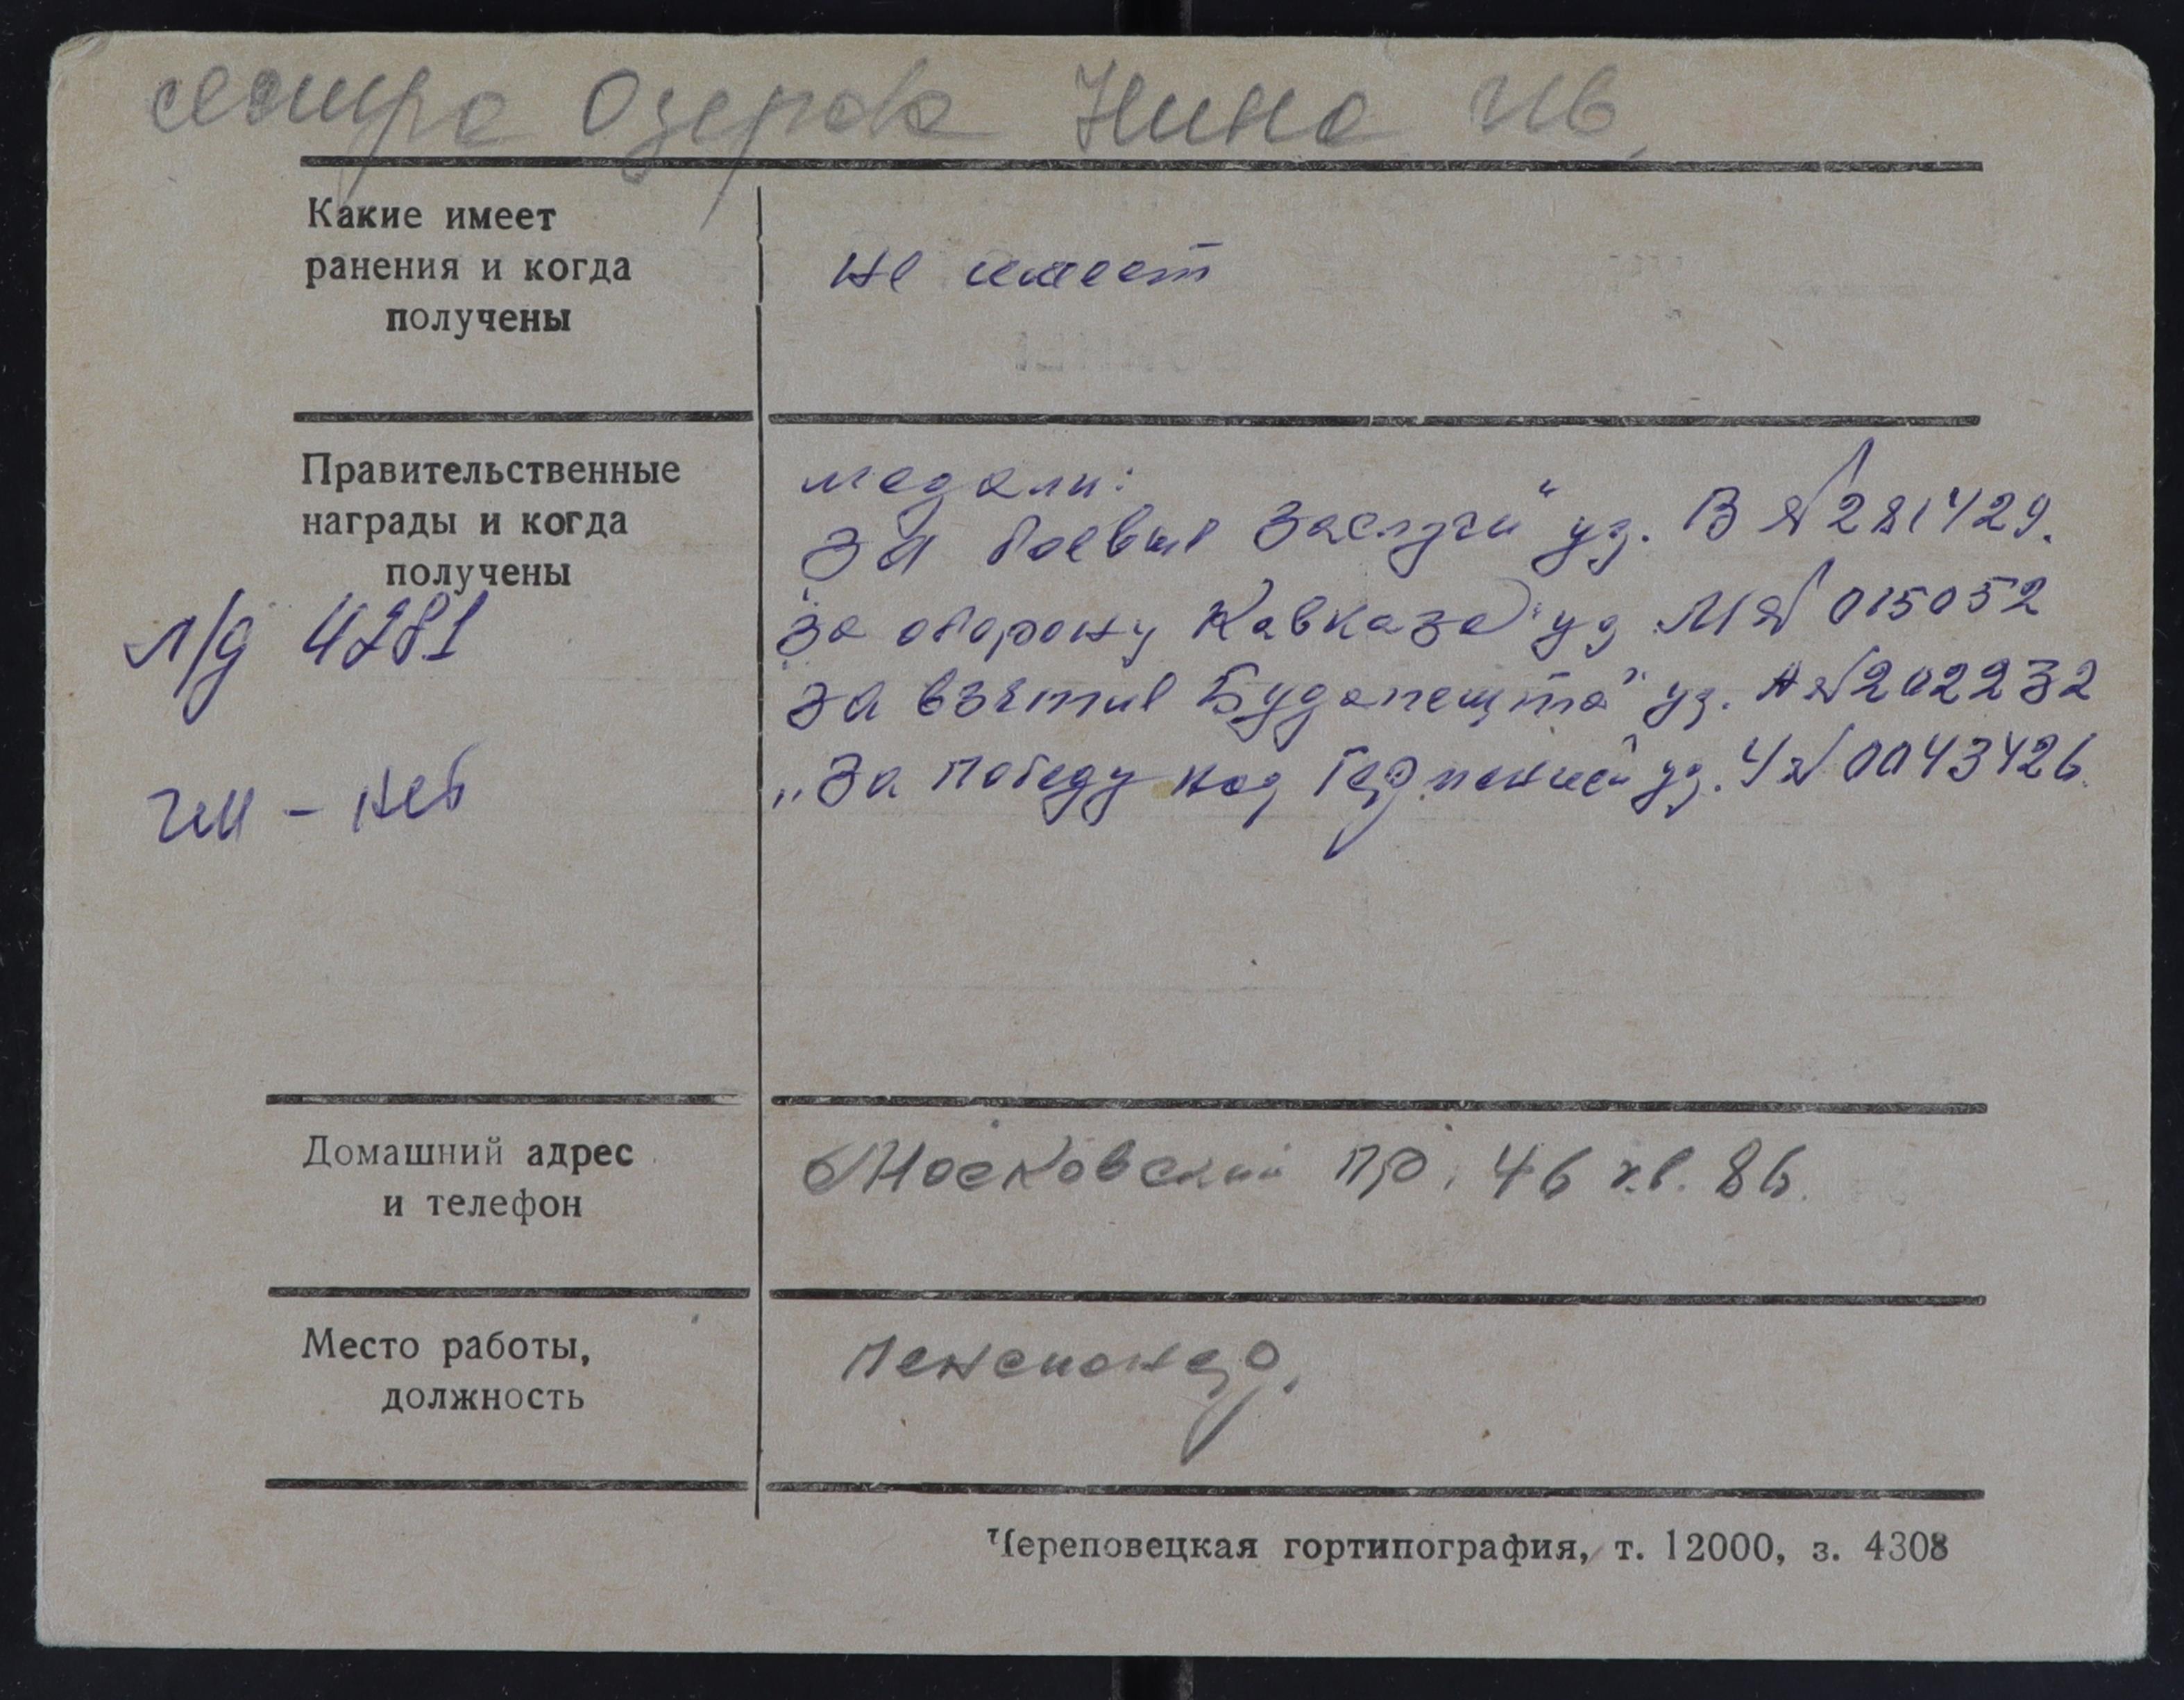 сестра Озерова Нина Ив.
Какие имеет
ранения и когда
получены
не имеет
Правительственные
награды и когда
получены
л/д 4281
медали:
За боевые заслуги" уд. В № 281429.
"За оборону Кавказа" уд М № 015052
"За взятие Будапешта" уд. А № 202232
„За победу над Германией" уд. Ч № 0043426.
Домашний адрес
и телефон
Московский пр. 46 кв. 86.
Место работы,
должность
пенсионер.
Череповецкая гортипография, т. 12000, з. 4308